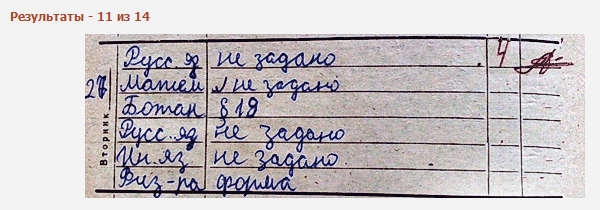 Результаты - 11 из 14
Вторник
Русс. яз не задано 4
Матем не задано
Ботан § 19
Русс. яз не задано
Ин. яз не задано
Физ-ра форма